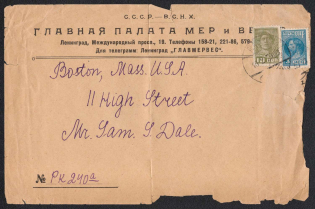 С.С.С.Р.—В.С.Н.Х.
ГЛАВНАЯ ПАЛАТА МЕР и ВЕ
Ленинград, Международный просп., 19. Телефоны 158-21, 221-86, 579-
Для телеграмм: Ленинград „ГЛАВМЕРВЕС“
Boston, Mass. U.S.A
11 High Street
Mr. Sam. S. Dale.
№ РК 240а